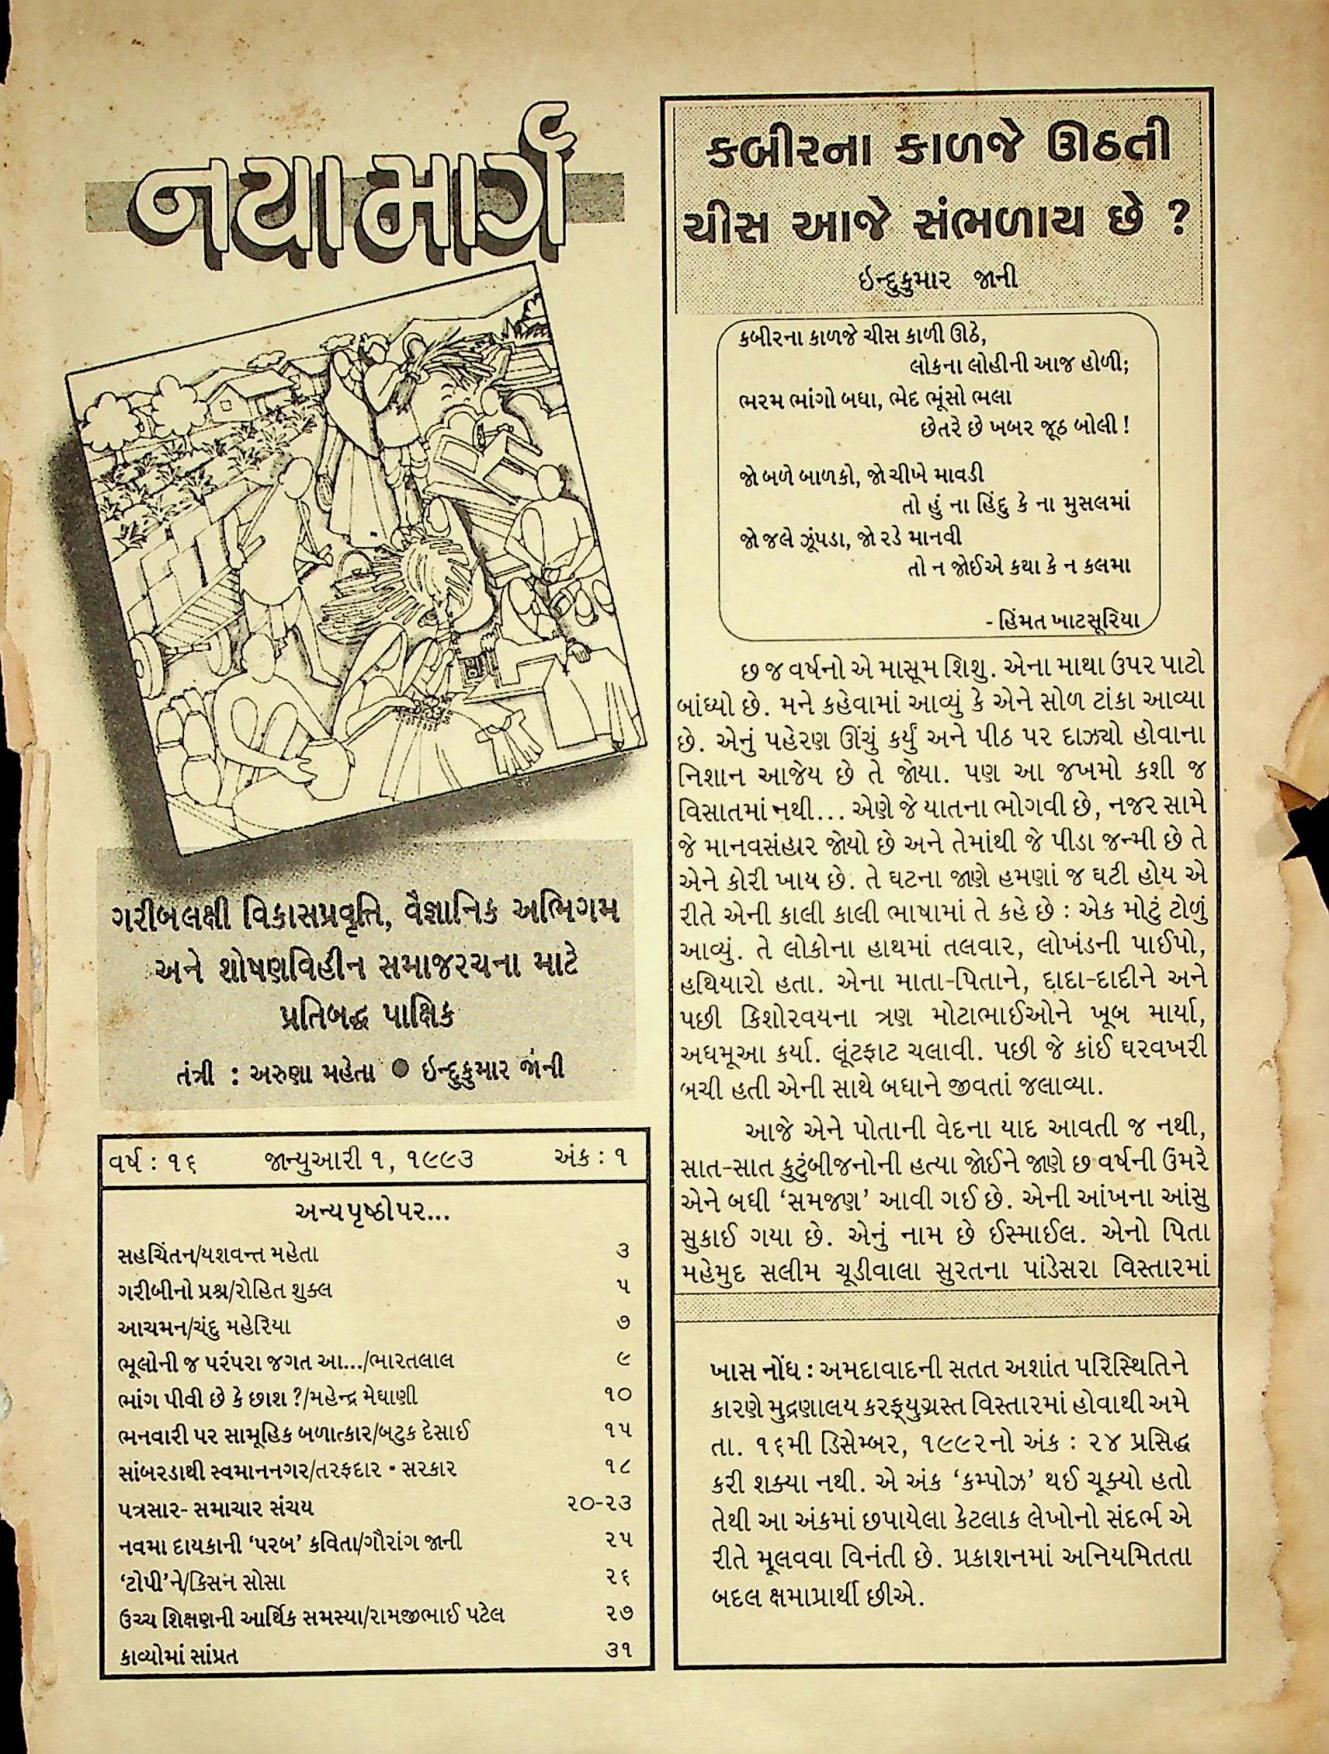 નયા માર્ગ
ગરીબલક્ષી વિકાસપ્રવૃત્તિ, વૈજ્ઞાનિક અભિગમ
અને શોષણવિહીન સમાજરચના માટે
પ્રતિબદ્ધ પાક્ષિક
તંત્રી : અરુણા મહેતા ● ઇન્દુકુમાર જાની
વર્ષ : ૧૬ જાન્યુઆરી ૧, ૧૯૯૩ અંક : ૧
અન્ય પૃષ્ઠો પર...
સહચિંતન/યશવન્ત મહેતા ૩
ગરીબીનો પ્રશ્ન/રોહિત શુક્લ ૫
આચમન/ચંદુ મહેરિયા ૭
ભૂલોની જ પરંપરા જગત આ.../ભારતલાલ ૯
ભાંગ પીવી છે કે છાશ ?/મહેન્દ્ર મેઘાણી ૧૦
ભનવારી પર સામૂહિક બળાત્કાર/બટુક દેસાઈ ૧૫
સાંબરડાથી સ્વમાનનગર/તરફદાર - સરકાર ૧૮
પત્રસાર- સમાચાર સંચય ૨૦-૨૩
નવમા દાયકાની ‘પરબ’ કવિતા/ગૌરાંગ જાની ૨૫
‘ટોપી’ને/કિસન સોસા ૨૬
ઉચ્ચ શિક્ષણની આર્થિક સમસ્યા/રામજીભાઈ પટેલ ૨૭
કાવ્યોમાં સાંપ્રત ૩૧
કબીરના કાળજે ઊઠતી
ચીસ આજે સંભળાય છે ?
ઇન્દુકુમાર જાની
કબીરના કાળજે ચીસ કાળી ઊઠે,
લોકના લોહીની આજ હોળી;
ભરમ ભાંગો બધા, ભેદ ભૂંસો ભલા
છેતરે છે ખબર જૂઠ બોલી !
જો બળે બાળકો, જો ચીખે માવડી
તો હું ના હિંદુ કે ના મુસલમાં
જો જલે ઝૂંપડા, જો રડે માનવી
તો ન જોઈએ કથા કે ન કલમા
- હિંમત ખાટસૂરિયા
છ જ વર્ષનો એ માસૂમ શિશુ. એના માથા ઉપર પાટો
બાંધ્યો છે. મને કહેવામાં આવ્યું કે એને સોળ ટાંકા આવ્યા
છે. એનું પહેરણ ઊંચું કર્યું અને પીઠ પર દાઝ્યો હોવાના
નિશાન આજેય છે તે જોયા. પણ આ જખમો કશી જ
વિસાતમાં નથી... એણે જે યાતના ભોગવી છે, નજર સામે
જે માનવસંહાર જોયો છે અને તેમાંથી જે પીડા જન્મી છે તે
એને કોરી ખાય છે. તે ઘટના જાણે હમણાં જ ઘટી હોય એ
રીતે એની કાલી કાલી ભાષામાં તે કહે છે : એક મોટું ટોળું
આવ્યું. તે લોકોના હાથમાં તલવાર, લોખંડની પાઈપો,
હથિયારો હતા. એના માતા-પિતાને, દાદા-દાદીને અને
પછી કિશોરવયના ત્રણ મોટાભાઈઓને ખૂબ માર્યા,
અધમૂઆ કર્યા. લૂંટફાટ ચલાવી. પછી જે કાંઈ ઘરવખરી
બચી હતી એની સાથે બધાને જીવતાં જલાવ્યા.
આજે એને પોતાની વેદના યાદ આવતી જ નથી,
સાત-સાત કુટુંબીજનોની હત્યા જોઈને જાણે છ વર્ષની ઉમરે
એને બધી ‘સમજણ’ આવી ગઈ છે. એની આંખના આંસુ
સુકાઈ ગયા છે. એનું નામ છે ઈસ્માઈલ. એનો પિતા
મહેમુદ સલીમ ચૂડીવાલા સુરતના પાંડેસરા વિસ્તારમાં
ખાસ નોંધ : અમદાવાદની સતત અશાંત પરિસ્થિતિને
કારણે મુદ્રણાલય કરફ્યુગ્રસ્ત વિસ્તારમાં હોવાથી અમે
તા. ૧૬મી ડિસેમ્બર, ૧૯૯૨નો અંક : ૨૪ પ્રસિદ્ધ
કરી શક્યા નથી. એ અંક ‘કમ્પોઝ’ થઈ ચૂક્યો હતો
તેથી આ અંકમાં છપાયેલા કેટલાક લેખોનો સંદર્ભ એ
રીતે મૂલવવા વિનંતી છે. પ્રકાશનમાં અનિયમિતતા
બદલ ક્ષમાપ્રાર્થી છીએ.